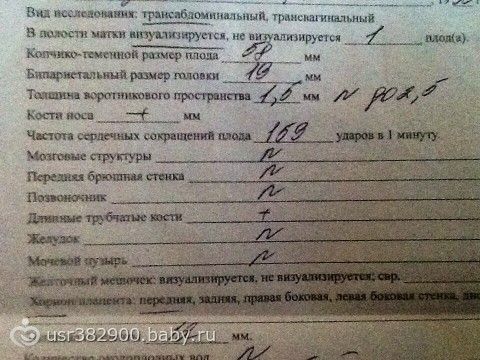 Вид исследования: трансабдоминальный, трансвагинальный
В полости матки визуализируется, не визуализируется 1 плод(а).
Копчико-теменной размер плода 58 мм
Бипариетальный размер головки 19 мм
Толщина воротникового пространства 1,5 мм N до 2,5
Кости носа + мм
Частота сердечных сокращений плода 159 ударов в 1 минуту
Мозговые структуры N
Передняя брюшная стенка N
Позвоночник N
Длинные трубчатые кости +
Желудок N
Мочевой пузырь N
Желточный мешочек: визуализируется, не визуализируется; свр.
Хорион/плацента: передняя, задняя, правая боковая, левая боковая стенка,
мм.
Количество околоплодных вод N
usr382900.baby.ru